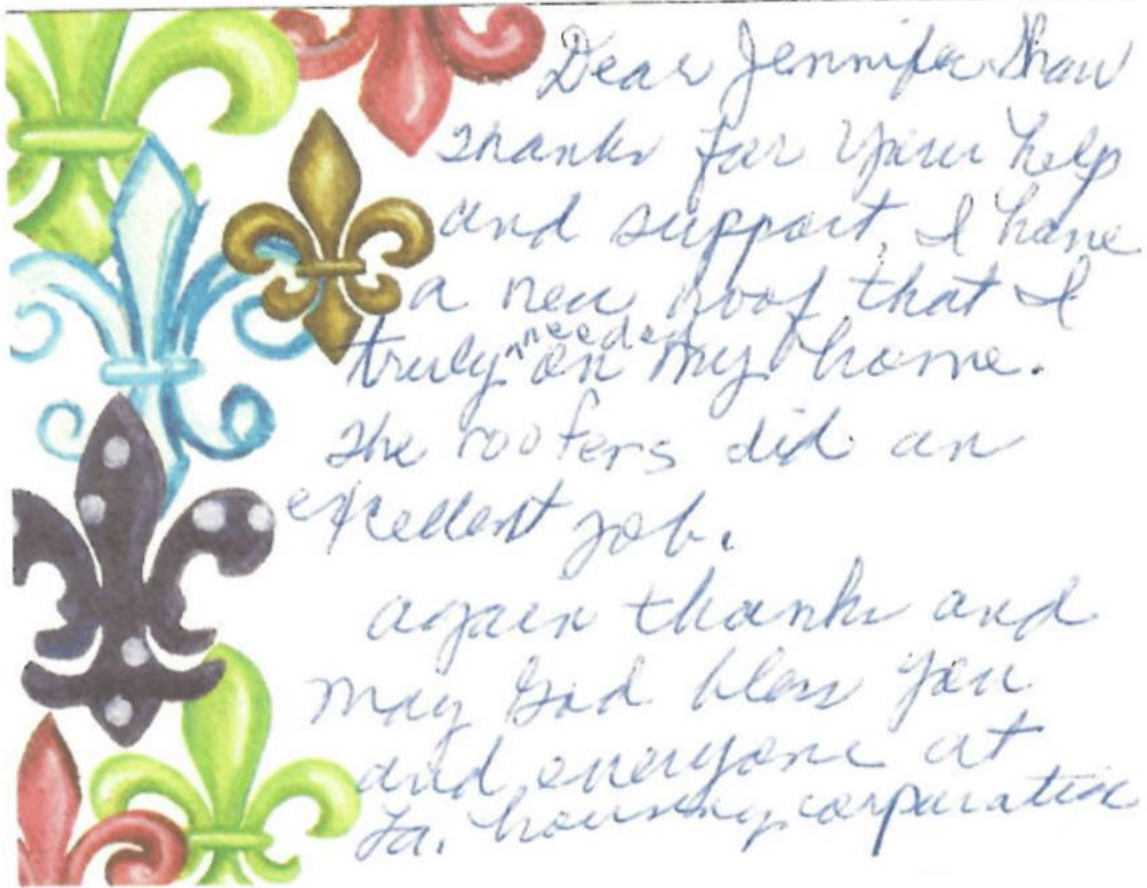 Dear Jennifer Shaw
Thanks for your help
and support, I have
a new roof that I
truly needed on my home.
The roofers did an
excellent job.
again thanks and
may God bless you
and everyone at
La. housing corporation